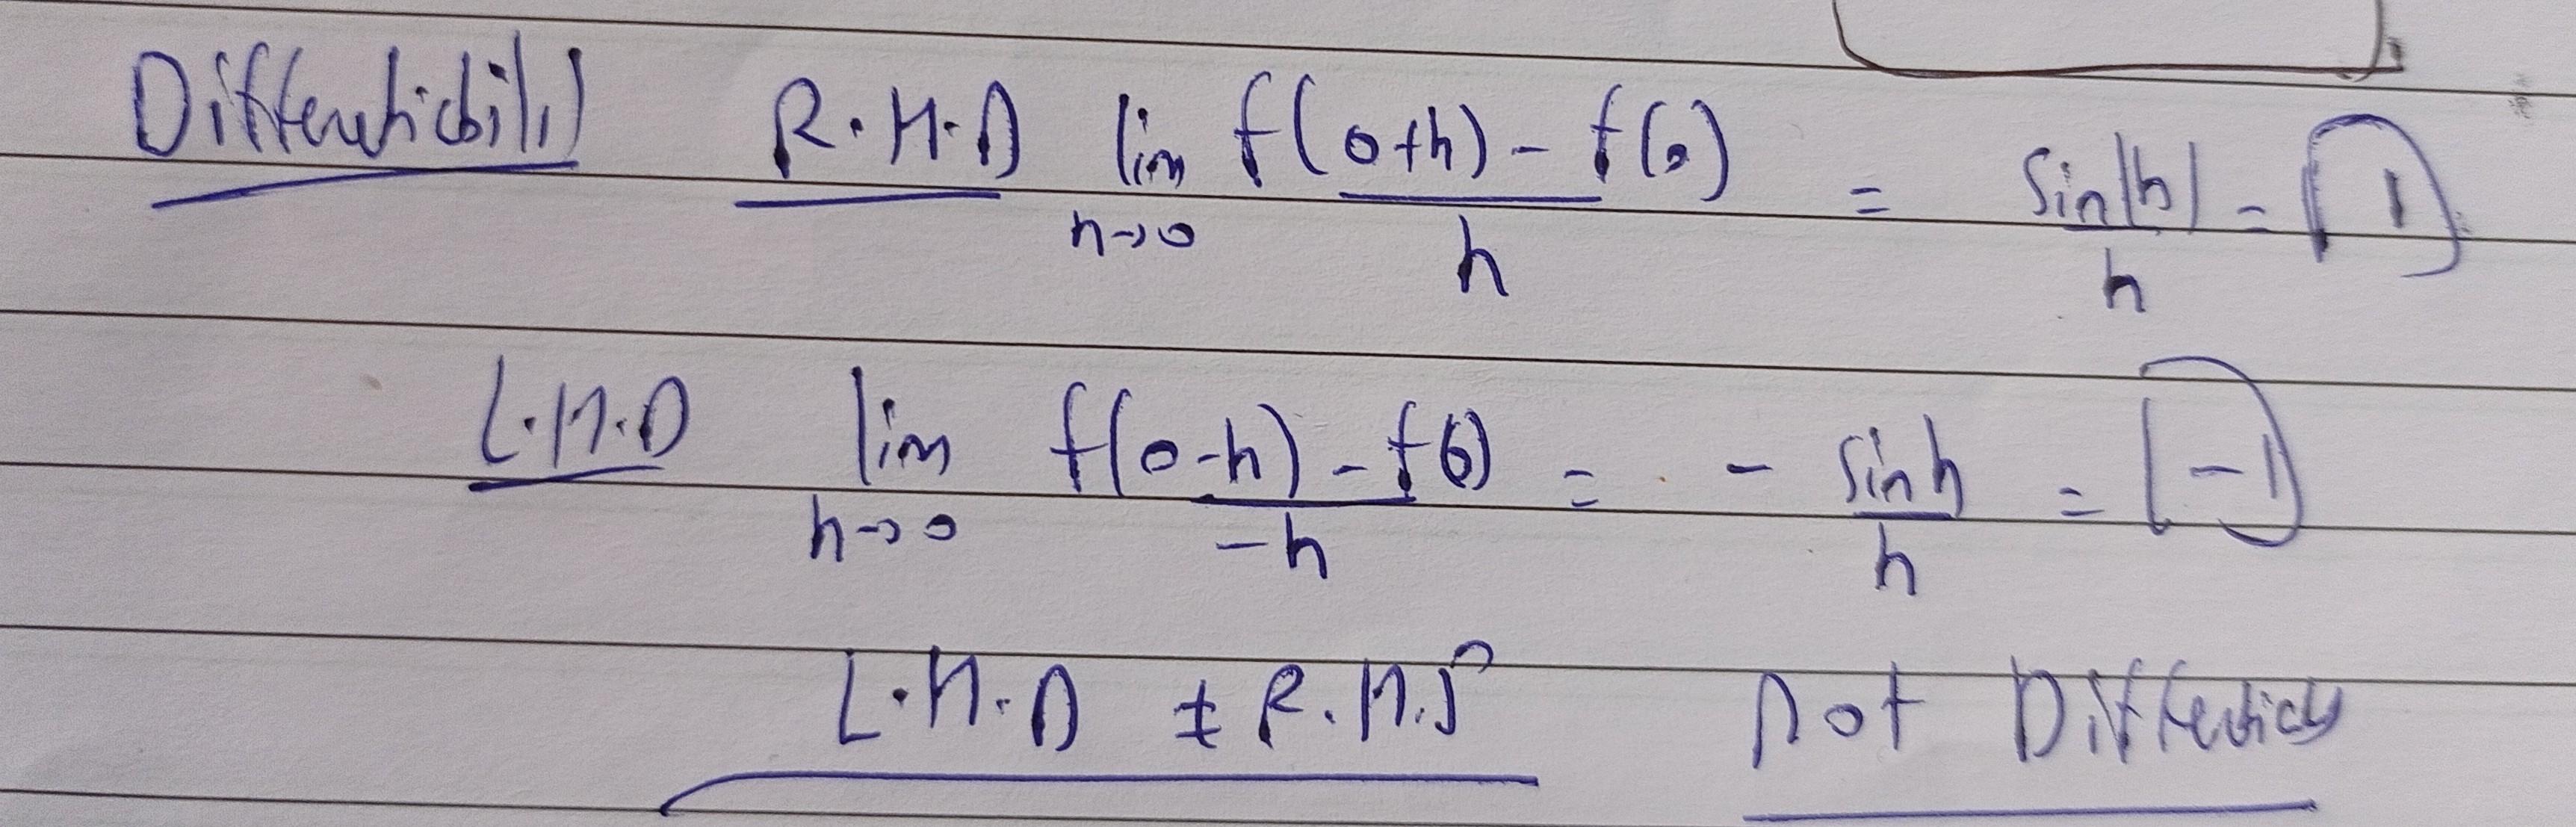 Differentiabili) R.H.D lim h→0 f(0+h) - f(0) / h = Sin|h| / h = 1
L.H.D lim h→0 f(0-h) - f(0) / -h = - Sinh / h = -1
L.H.D ≠ R.H.D not